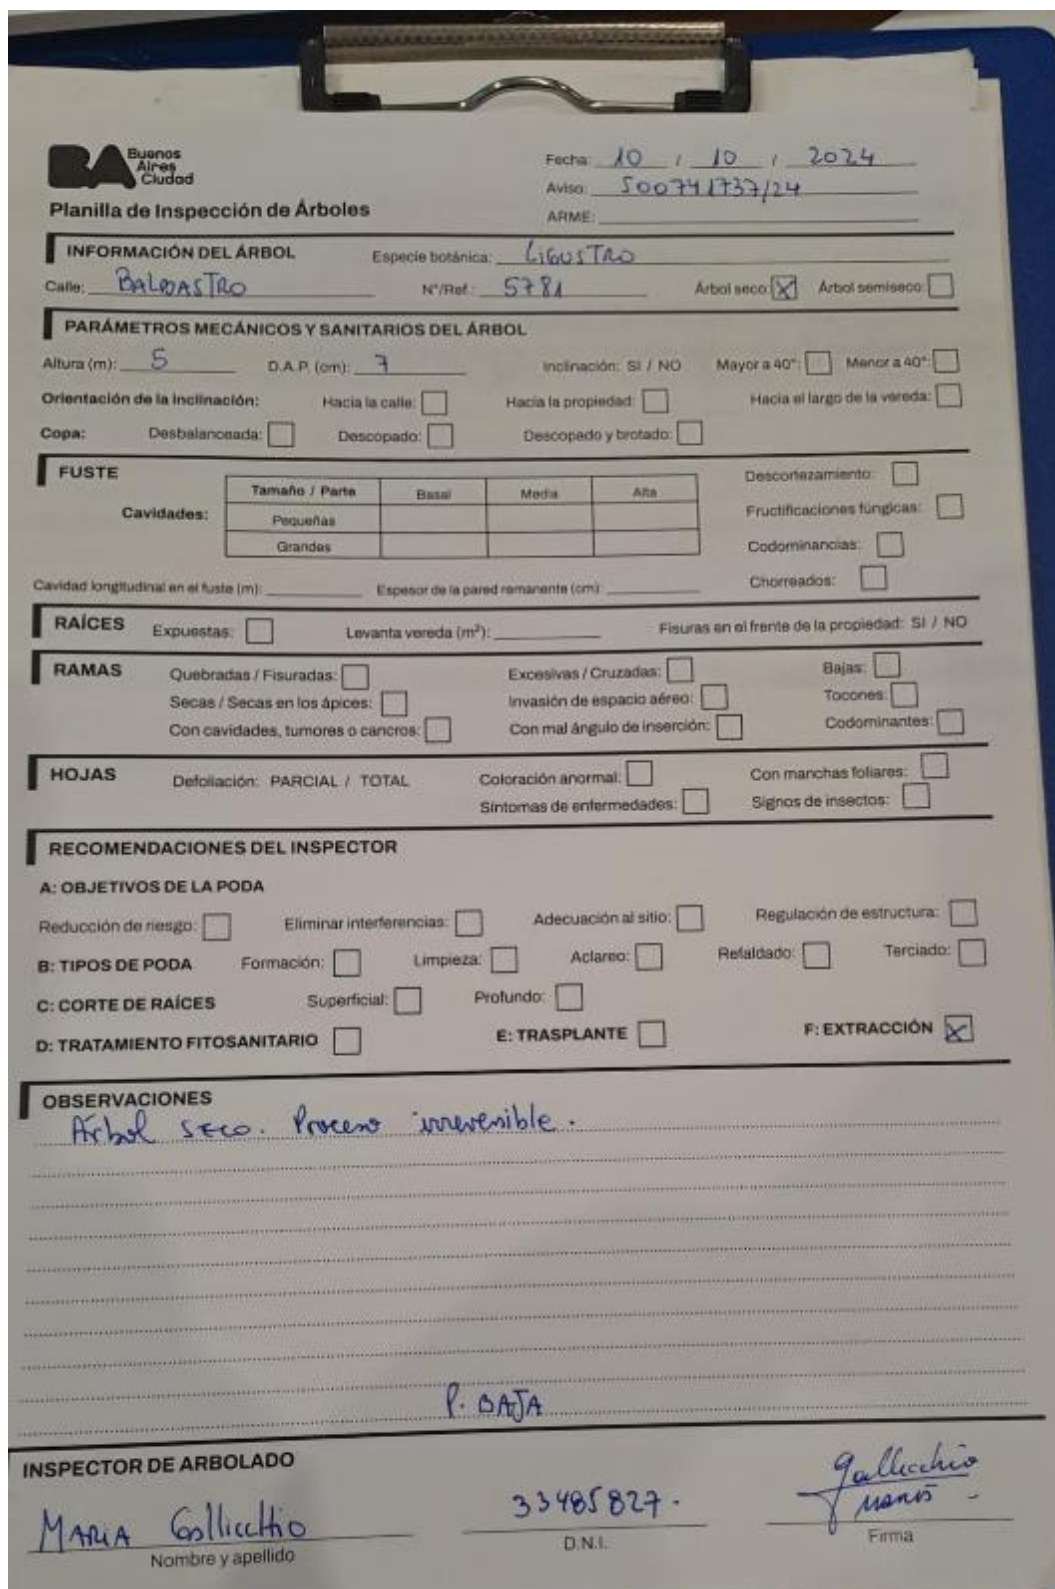 BA Buenos
Aires
Ciudad
Fecha: 10 / 10 / 2024
Aviso: 500741737/24
Planilla de Inspección de Árboles
ARME:
INFORMACIÓN DEL ÁRBOL Especie botánica: LIGUSTRO
Calle: BALBASTRO N°/Ref.: 5781 Árbol seco: X Árbol semiseco:
PARÁMETROS MECÁNICOS Y SANITARIOS DEL ÁRBOL
Altura (m): 5 D.A.P. (cm): 7 Inclinación: SI / NO Mayor a 40°: Menor a 40°:
Orientación de la inclinación: Hacia la calle: Hacia la propiedad: Hacia el largo de la vereda:
Copa: Desbalanceada: Descopado: Descopado y brotado:
FUSTE
Cavidades:
Tamaño / Parte Basal Media Alta
Pequeñas
Grandes
Descortezamiento:
Fructificaciones fúngicas:
Codominancias:
Chorreados:
Cavidad longitudinal en el fuste (m): Espesor de la pared remanente (cm):
RAÍCES Expuestas: Levanta vereda (m²): Fisuras en el frente de la propiedad: SI / NO
RAMAS Quebradas / Fisuradas: Excesivas / Cruzadas: Bajas:
Secas / Secas en los ápices: Invasión de espacio aéreo: Tocones:
Con cavidades, tumores o cancros: Con mal ángulo de inserción: Codominantes:
HOJAS Defoliación: PARCIAL / TOTAL Coloración anormal: Con manchas foliares:
Síntomas de enfermedades: Signos de insectos:
RECOMENDACIONES DEL INSPECTOR
A: OBJETIVOS DE LA PODA
Reducción de riesgo: Eliminar interferencias: Adecuación al sitio: Regulación de estructura:
B: TIPOS DE PODA Formación: Limpieza: Aclareo: Refaldado: Terciado:
C: CORTE DE RAÍCES Superficial: Profundo:
D: TRATAMIENTO FITOSANITARIO E: TRASPLANTE F: EXTRACCIÓN X
OBSERVACIONES
Árbol seco. Proceso irreversible.
P. BAJA
INSPECTOR DE ARBOLADO
MARIA Gallicchio 33485827. Gallicchio
Nombre y apellido D.N.I. Firma